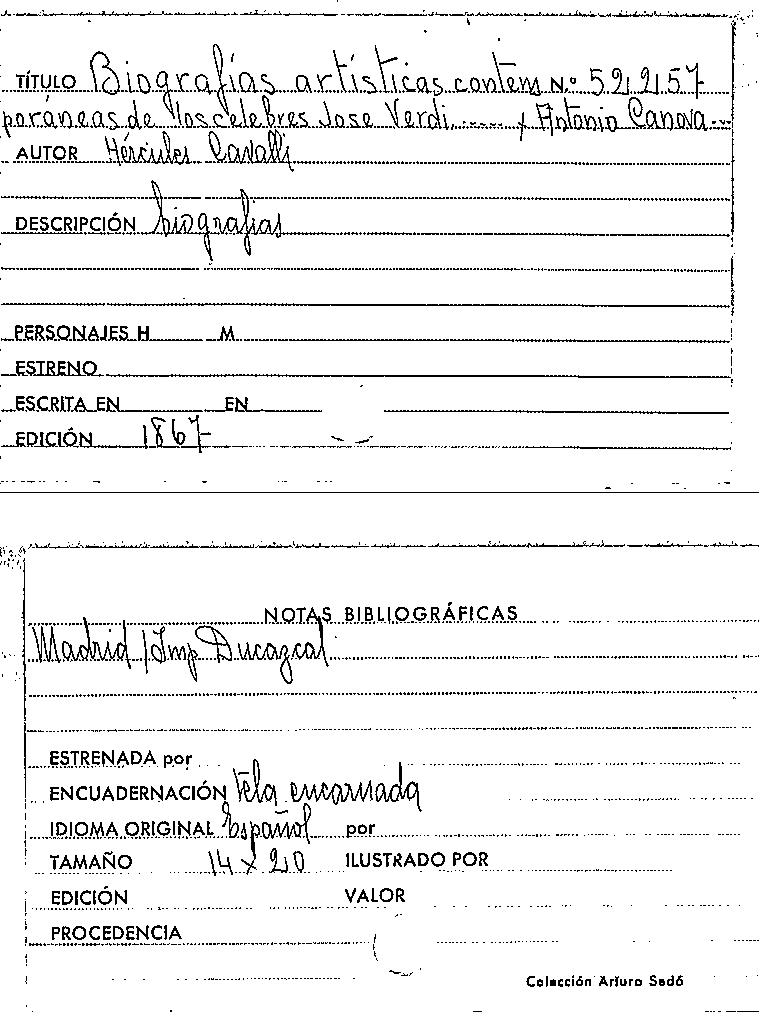 TÍTULO Biografías artísticas contem N.º 52157
poráneas de los celebres Jose Verdi..... y Antonio Canova...
AUTOR Hércules Cavalli
DESCRIPCIÓN biografias
PERSONAJES H M
ESTRENO
ESCRITA EN EN
EDICIÓN 1867
NOTAS BIBLIOGRÁFICAS
Madrid / Imp Ducazcal
ESTRENADA por
ENCUADERNACIÓN Tela encarnada
IDIOMA ORIGINAL Español por
TAMAÑO 14 x 20 ILUSTRADO POR
EDICIÓN VALOR
PROCEDENCIA
Colección Arturo Sedó